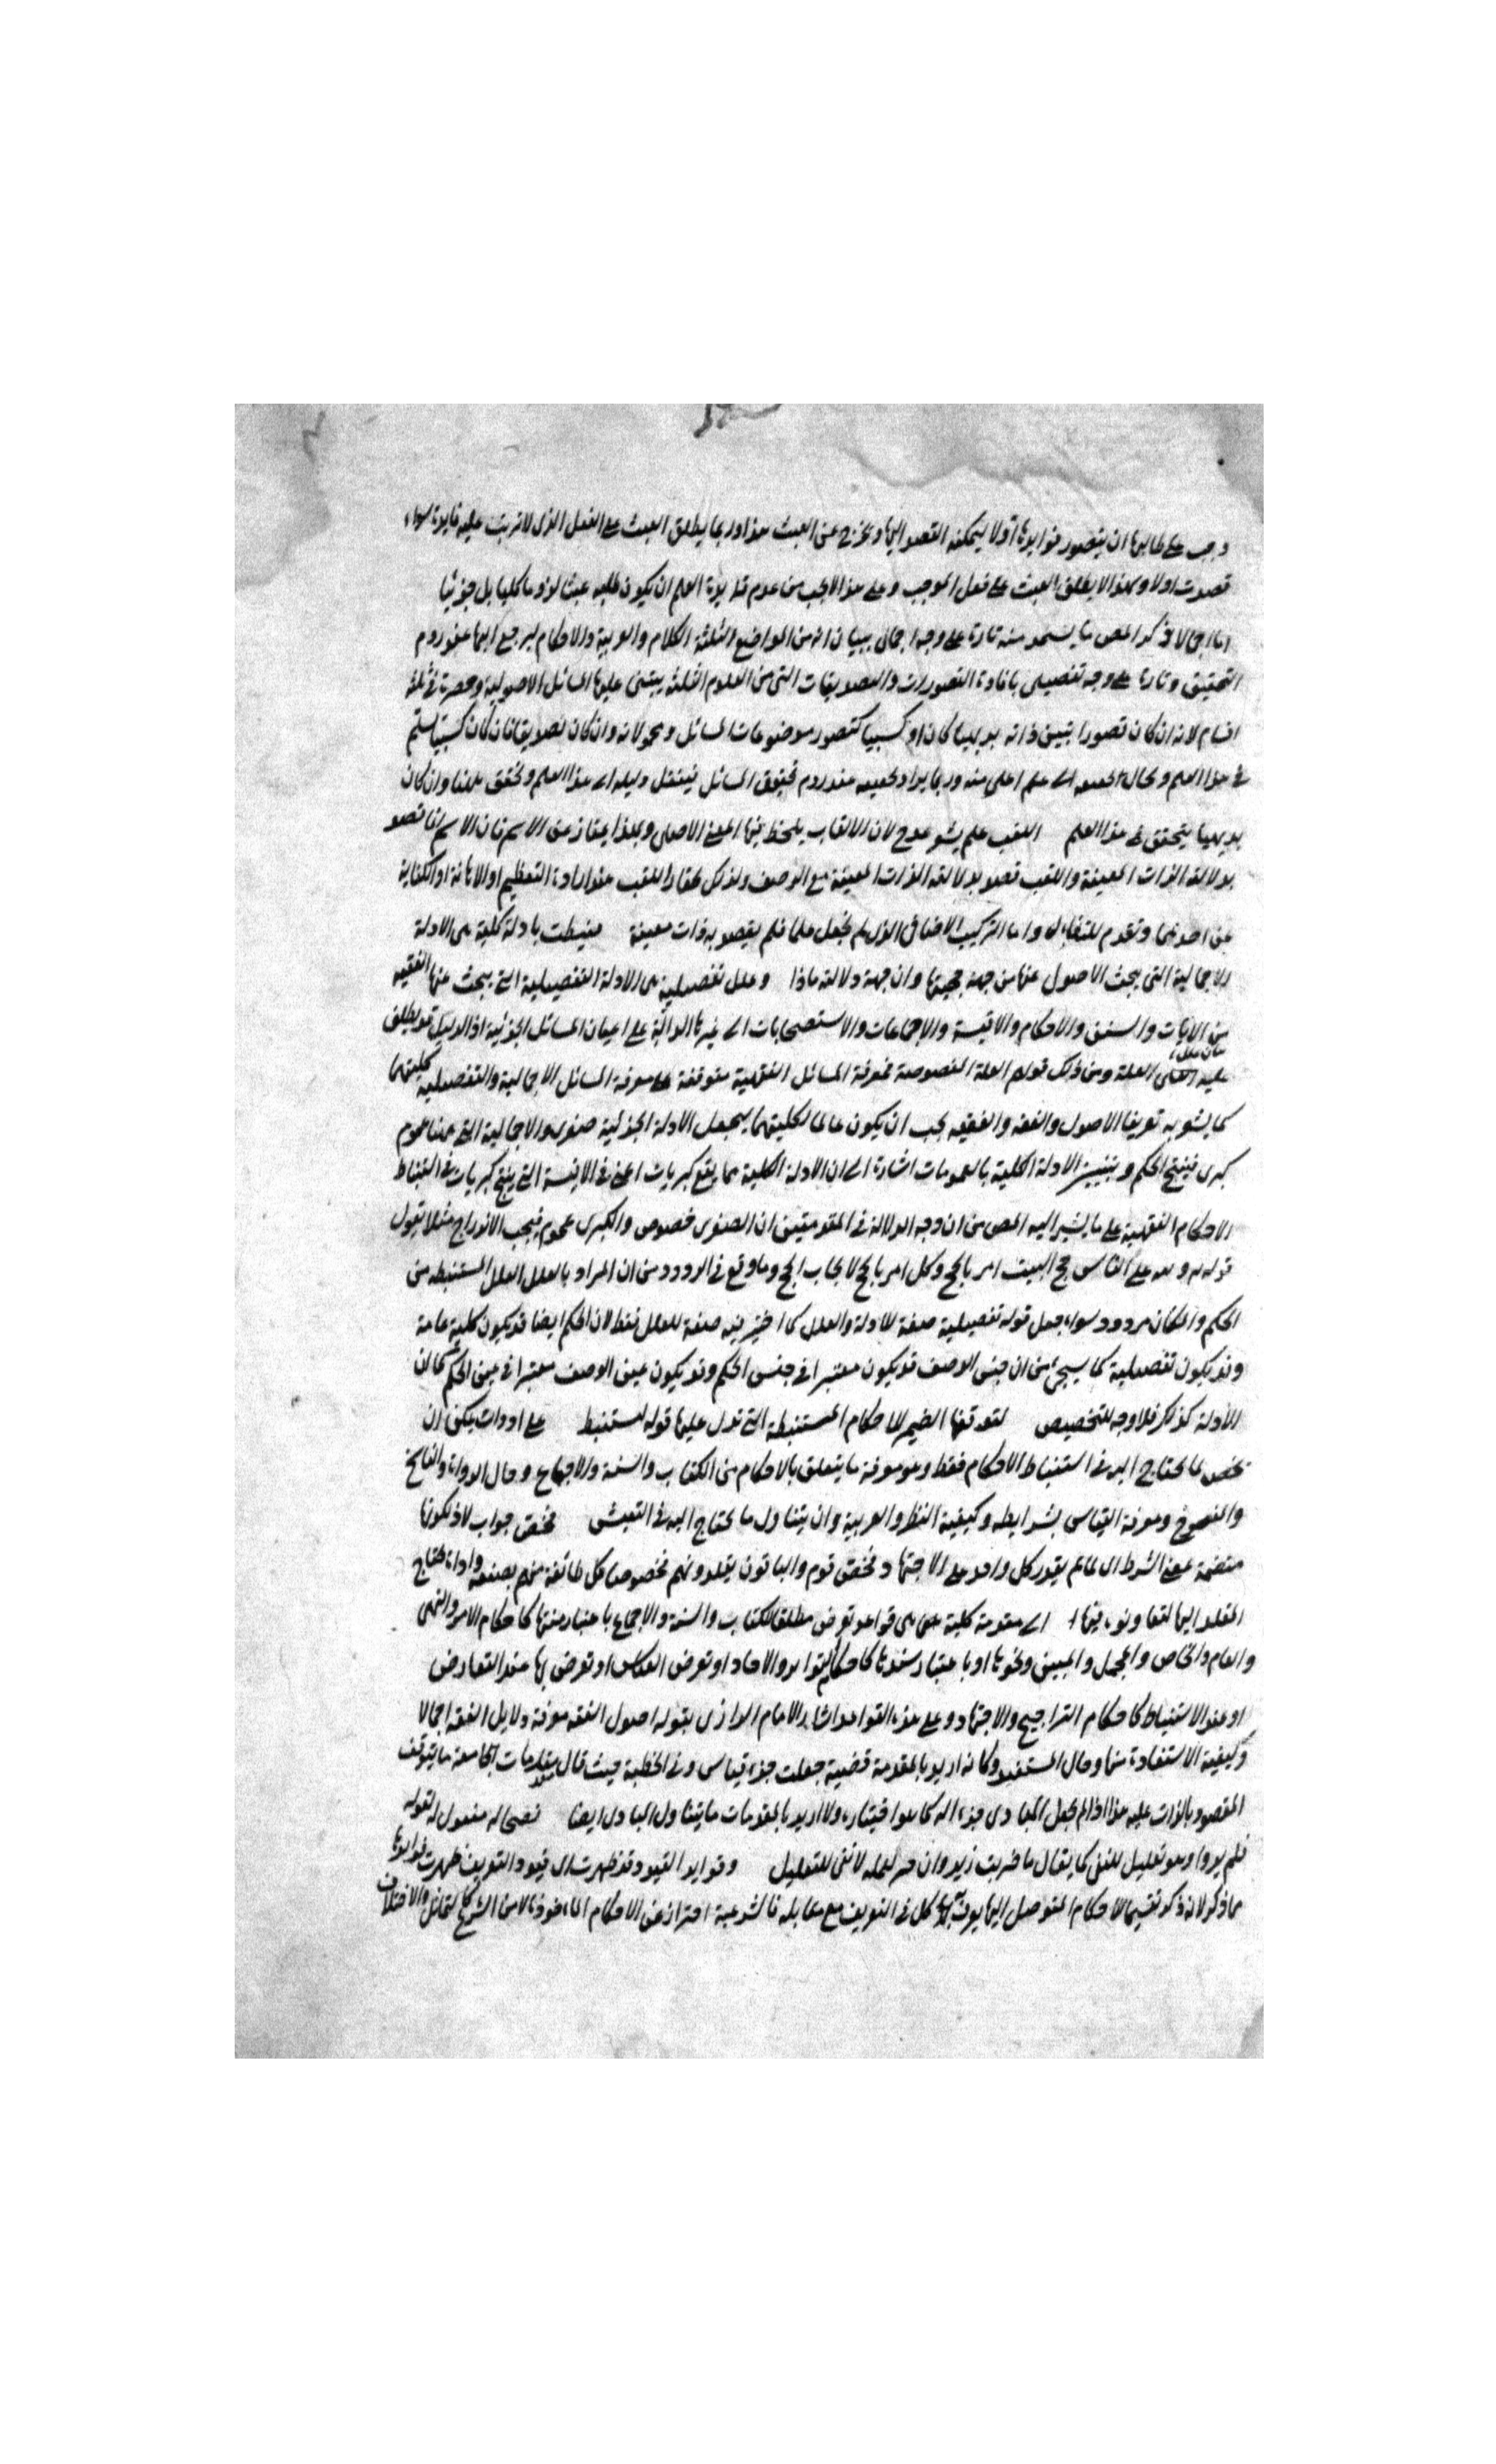 وجب على طالبها ان يتصور فوايدها اولا ليمكنه القصد اليها ويخرج عن العبث هذا وربما يطلق العبث على الفعل الذى لا ترتب عليه فايدة سواء
قصدت اولا وبهذا لا يطلق العبث على فعل الموجب وعلى هذا لا يجب من عدم فايدة العلم ان يكون طلبه عبثا لزوما كليا بل جزئيا
اما اجمالا ذكر المص ما يستمد منه تارة على وجه اجمالى ببيان انه من المواضع الثلثة الكلام والعربية والاحكام ليرجع اليها عند روم
التحقيق وتارة على وجه تفصيلى بافادة التصورات والتصديقات التى من العلوم الثلثة يبتنى عليها المسائل الاصولية وحصرت فى ثلثة
اقسام لانه ان كان تصورا يتبين ذاته بديهيا كان او كسبيا كتصور موضوعات المسائل ومحمولاته وان كان تصديقا فان كان كسبيا يسلم
فى هذا العلم ويحال الى علم اعلى منه وربما يراد عند روم تحقيق المسائل فينتقل دليله الى هذا العلم ويحقق ههنا وان كان
بديهيا يتحقق فى هذا العلم اللقب علم يشعر بمدح لان الالقاب يلحظ فيها المعنى الاصلى وبهذا يمتاز عن الاسم فان الاسم انما قصد
بدلالته الذات المعينة واللقب قصد بدلالته الذات المعينة مع الوصف ولذلك يختار اللقب عند ارادة التعظيم او الاهانة او الكناية
عن احدهما وتقدم للتفاؤل واما التركيب الاضافى الذى لم يجعل علما فلم يقصد به ذات معينة منيطت بادلة كلية هى الادلة
الاجمالية التى يبحث الاصول عنها من جهة حجيتها وان جهة دلالته ماذا وعلل تفصيلية هى الادلة التفصيلية التى يبحث عنها الفقيه
من الايات والسنن والاحكام والاقيسة والاجماعات والاستصحابات الى غيرها الدالة على اعيان المسائل الجزئية اذ الدليل قد يطلق
عليه العلة ومن ذلك قولهم العلة المنصوصة فمعرفة المسائل الفقهية متوقفة على معرفة المسائل الاجمالية والتفصيلية كليتهما
كما يشعر به تعريفا الاصول والفقه والفقيه يجب ان يكون عالما لكليتهما يجعل الادلة الجزئية صغرى والاجمالية التى عمنا عموم
كبرى فينتج الحكم وتبيين الادلة الكلية بالعمومات اشارة الى ان الادلة الكلية مما يقع كبريات اعنى فى الاقيسة التى ينتج كبريات فى استنباط
الاحكام الفقهية على ما يشير اليه المص من ان وجه الدلالة فى المقدمتين ان الصغرى خصوص والكبرى عموم فيجب الاندراج مثلا يقول
قوله ولله على الناس حج البيت امر بالحج وكل امر بالحج لايجاب الحج وما وقع فى الردود من ان المراد بالعلل العلل المستنبطة من
الحكم والمكان مردود سواء جعل قوله تفصيلية صفة للادلة والعلل كما اختير فيه صفة للعلل فقط لان الحكم ايضا قد يكون كلية عامة
وقد يكون تفصيلية كما سيجئ من ان جنس الوصف قد يكون معتبرا فى جنس الحكم وقد يكون عين الوصف معتبرا فى عين الحكم كما ان
الادلة كذلك فلا وجه للتخصيص لتعرقها الضمير للاحكام المستنبطة التى تدل عليها قوله استنبط على ادوات يمكن ان
يخص لما يحتاج اليه فى استنباط الاحكام فقط وهو معرفة ما يتعلق بالاحكام من الكتاب والسنة والاجماع وحال الرواة والناسخ
والمنسوخ ومعرفة القياس بشرايطه وكيفية النظر والعربية وان يتناول ما يحتاج اليه فى التعيش فخص جواب لما لكونها
متضمنة معنى الشرط اى لما لم يقدر كل واحد على الاجتهاد فخص قوم والباقون يقلدونهم خصوصا كل طائفة منهم بصنعة وادات يحتاج
المقلد اليها لتعاونه فيها اى مقدمة كلية هى قواعد تعرض مطلق الكتاب والسنة والاجماع باعتبار متنها كاحكام الامر والنهى
والعام والخاص والمجمل والمبين ونحوها او باعتبار سندها كاحكام التواتر والاحاد او تعرض القياس او تعرض لها عند التعارض
او عند الاستنباط كاحكام التراجيح والاجتهاد وعلى هذه القواعد اشار الامام الرازى بقوله اصول الفقه معرفة دلايل الفقه اجمالا
وكيفية الاستفادة منها وحال المستفيد وكانه اريد بالمقدمة قضية جعلت جزء قياس وفى الخطبة حيث قال مقدمات الجامعة ما يتوقف
المقصود بالذات عليه هذا اذا لم يجعل المبادى جزء اله كما هو اختياره ولا اريد بالمقدمات ما يتناول المبادى ايضا نصحى له مفعول له لقوله
فلم يروا وهو تعليل للنفى كما يقال ما ضربت زيد وان لعله لا نفى للتعليل وفوايد القيود قد ظهرت اى قيود التعريف ظهرت فوايدها
مما ذكر لانه ذكر تقسيما للاحكام المتوصل اليها يعرف به كل فى التعريف مع مقابله فالشرعية احتراز عن الاحكام الماخوذة لا من الشرع كالتماثل والاختلاف